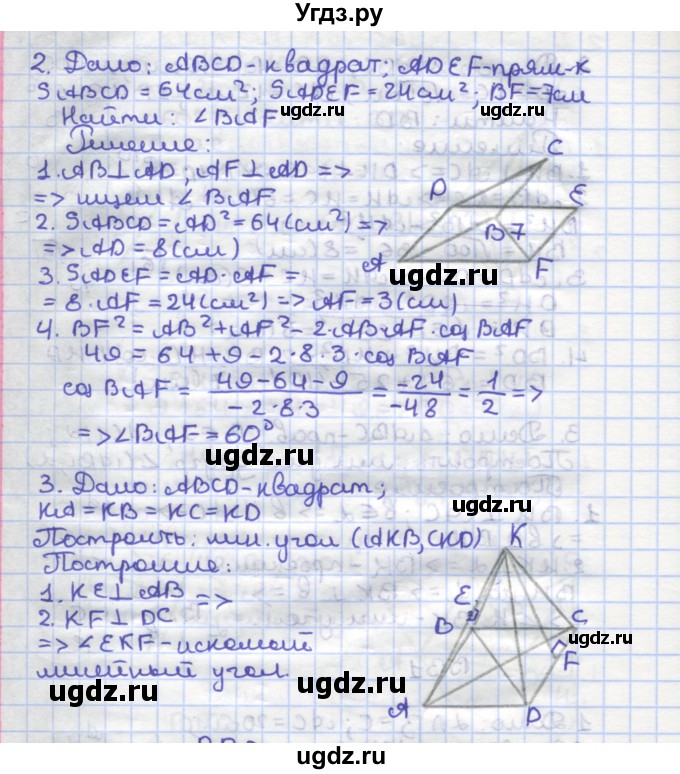 Угдз.ру
2. Дано: ABCD - квадрат; ADEF - прям-к
SABCD = 64 см²; SADEF = 24 см²; BF = 7 см
Найти: ∠BAF
ugdz.ru
Решение:
1. AB⊥AD; AF⊥AD =>
=> ищем ∠BAF
2. SABCD = AD² = 64 (см²) =>
=> AD = 8 (см)
3. SADEF = AD · AF =
= 8 · AF = 24 (см²) => AF = 3 (см)
C
D
E
B 7
A
F
ugdz.ru
ugdz.ru
4. BF² = AB² + AF² - 2·AB·AF · cos BAF
49 = 64 + 9 - 2·8·3 · cos BAF
ugdz.ru
cos BAF = (49-64-9)/(-2·8·3) = (-24)/(-48) = 1/2 =>
=> ∠BAF = 60°
ugdz.ru
3. Дано: ABCD - квадрат;
KA = KB = KC = KD
ugdz.ru
Построить: лин. угол (AKB, CKD)
Построение:
1. KE⊥AB =>
2. KF⊥DC
=> ∠EKF - искомый
линейный угол.
K
E
B
C
F
A
D
ugdz.ru
ugdz.ru
ugdz.ru
ugdz.ru